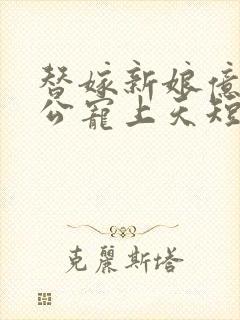 替嫁新娘億
公寵上天短
克麗斯塔